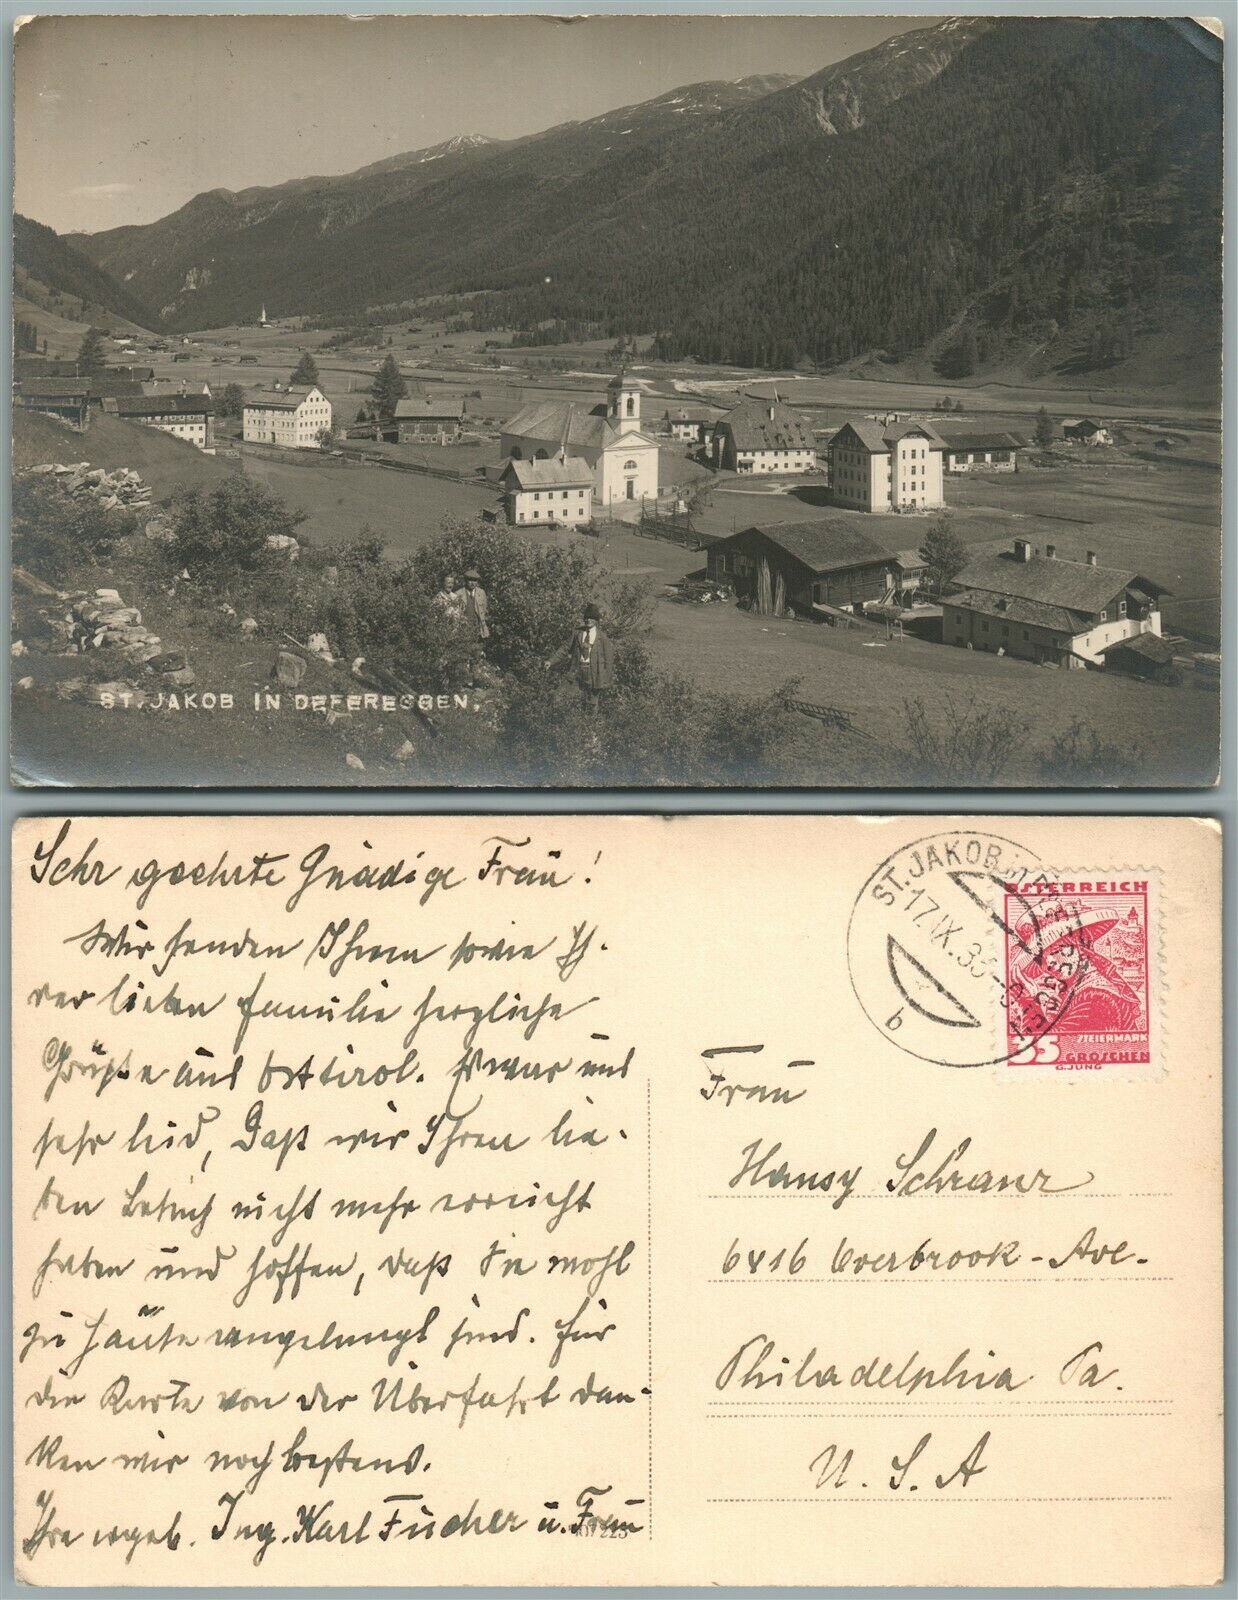 ST. JAKOB IN DEFEREGGEN.
Sehr geehrte Gnädige Frau!
Wir senden Ihnen sowie Ih-
rer lieben Familie herzliche
Grüße aus Osttirol. Es war uns
sehr leid, daß wir Ihren lie-
ben Besuch nicht mehr erreicht
haben und hoffen, daß Sie wohl
zu Hause angelangt sind. Für
die Karte von der Überfahrt dan-
ken wir noch bestens.
Ihre ergeb. Ing. Karl Fucher u. Frau
ST. JAKOB in DEFEREGGEN
17. IX. 35
b
ÖSTERREICH
STEIERMARK
35 GROSCHEN
G. JUNG
Frau
Hansy Schranz
6416 Overbrook-Ave.
Philadelphia Pa.
U. S. A